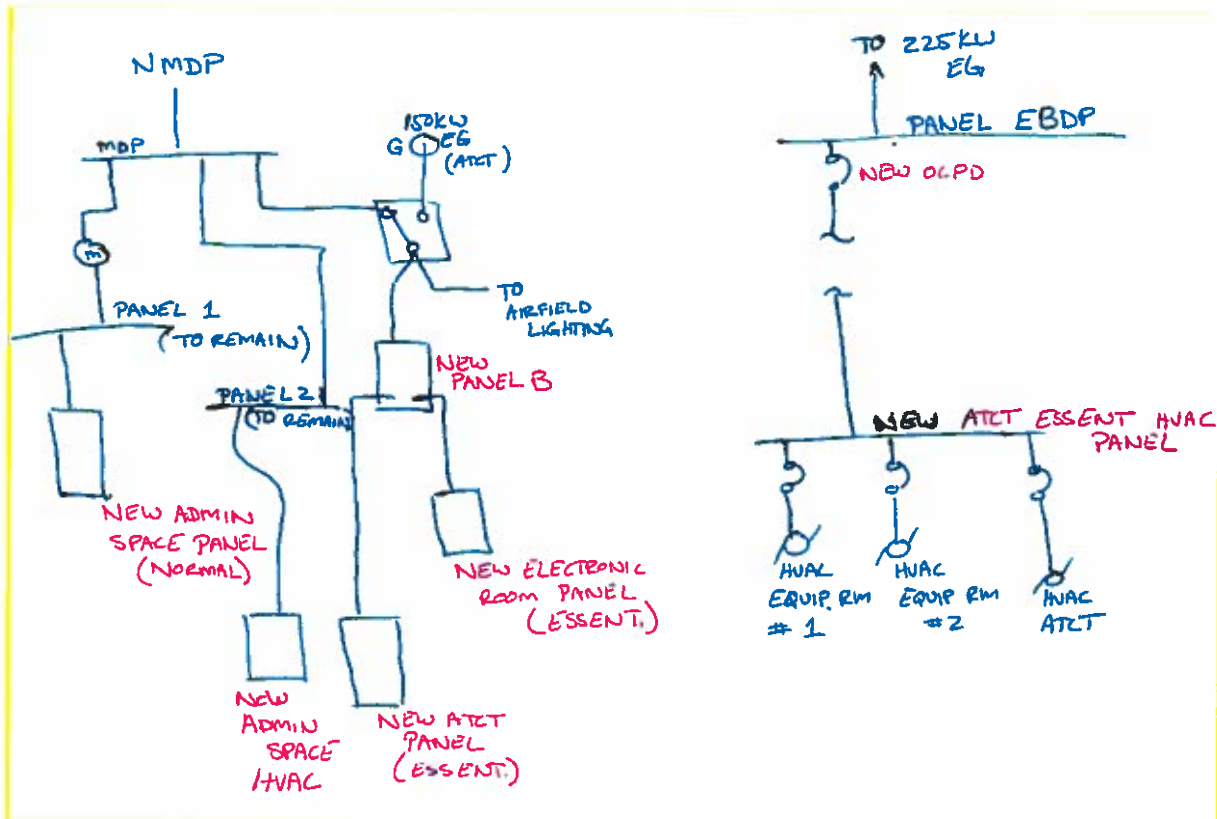 NMDP
MDP
150KW
G EG
(ATCT)
TO
AIRFIELD
LIGHTING
PANEL 1
(TO REMAIN)
NEW
PANEL B
PANEL 2
(TO REMAIN)
NEW ADMIN
SPACE PANEL
(NORMAL)
NEW ELECTRONIC
ROOM PANEL
(ESSENT.)
NEW
ADMIN
SPACE
HVAC
NEW ATCT
PANEL
(ESSENT.)
TO 225KW
EG
PANEL EBDP
NEW OCPD
NEW ATCT ESSENT HVAC
PANEL
HVAC
EQUIP. RM
# 1
HVAC
EQUIP RM
#2
HVAC
ATCT